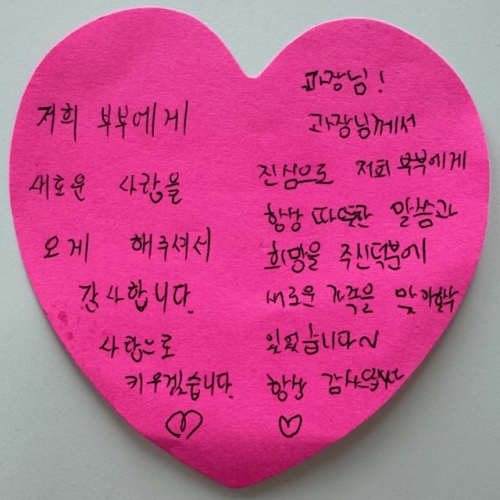 저희 부부에게
새로운 사랑을
오게 해주셔서
감사합니다.
사랑으로
키우겠습니다.
과장님!
과장님께서
진심으로 저희 부부에게
항상 따뜻한 말씀과
희망을 주신덕분에
새로운 가족을 맞이할수
있었습니다~
항상